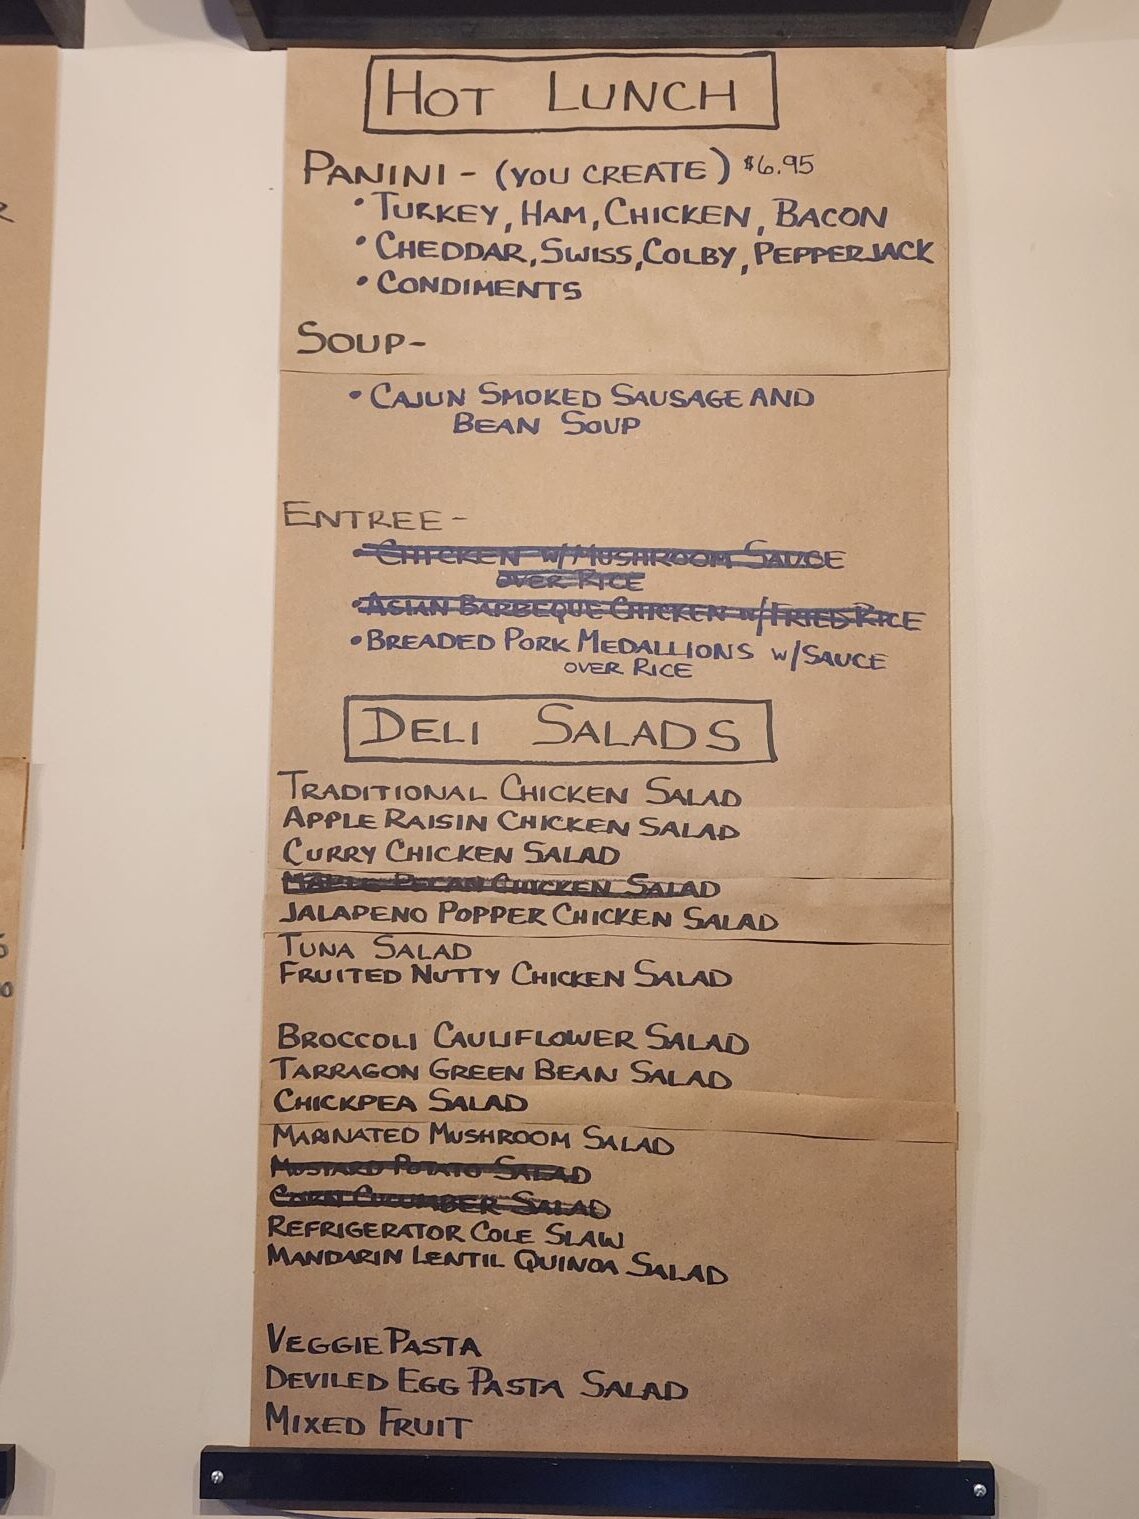 HOT LUNCH
PANINI - (YOU CREATE) $6.95
• TURKEY, HAM, CHICKEN, BACON
• CHEDDAR, SWISS, COLBY, PEPPERJACK
• CONDIMENTS
SOUP-
• CAJUN SMOKED SAUSAGE AND
BEAN SOUP
ENTREE-
• CHICKEN W/MUSHROOM SAUCE
OVER RICE
• ASIAN BARBEQUE CHICKEN W/FRIED RICE
• BREADED PORK MEDALLIONS W/SAUCE
OVER RICE
DELI SALADS
TRADITIONAL CHICKEN SALAD
APPLE RAISIN CHICKEN SALAD
CURRY CHICKEN SALAD
MAPLE PECAN CHICKEN SALAD
JALAPENO POPPER CHICKEN SALAD
TUNA SALAD
FRUITED NUTTY CHICKEN SALAD
BROCCOLI CAULIFLOWER SALAD
TARRAGON GREEN BEAN SALAD
CHICKPEA SALAD
MARINATED MUSHROOM SALAD
MUSTARD POTATO SALAD
CUCUMBER SALAD
REFRIGERATOR COLE SLAW
MANDARIN LENTIL QUINOA SALAD
VEGGIE PASTA
DEVILED EGG PASTA SALAD
MIXED FRUIT